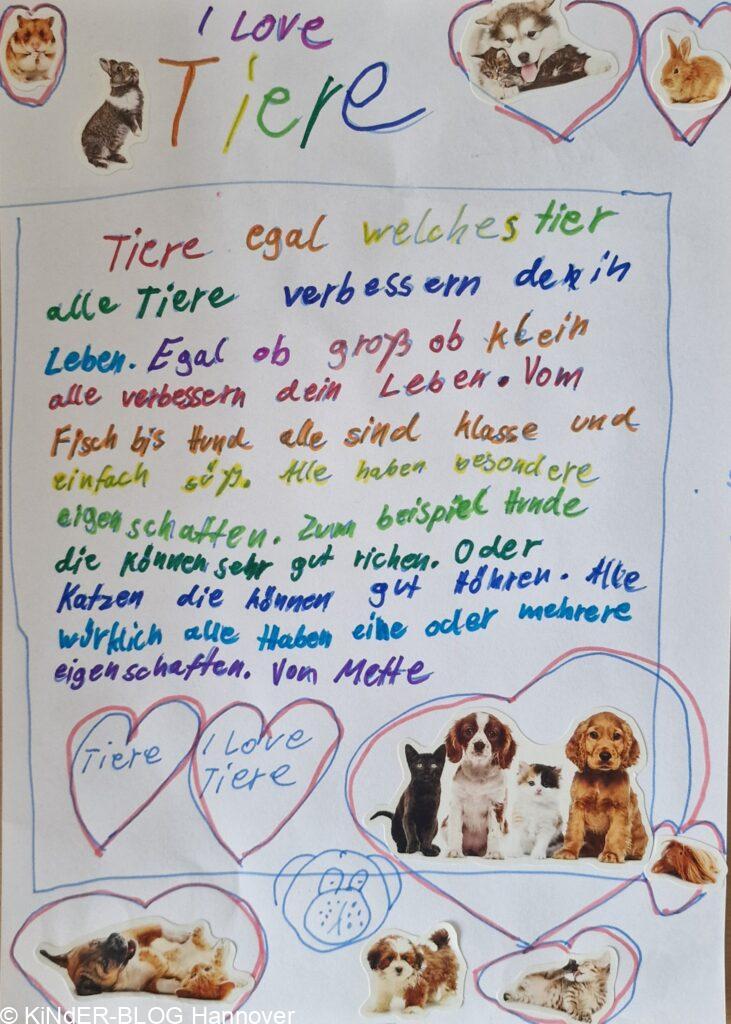 I Love
Tiere
Tiere egal welches tier
alle Tiere verbessern dein
Leben. Egal ob groß ob klein
alle verbessern dein Leben. Vom
Fisch bis Hund alle sind klasse und
einfach süß. Alle haben besondere
eigenschaften. Zum beispiel Hunde
die können sehr gut richen. Oder
Katzen die können gut Höhren. Alle
würklich alle Haben eine oder mehrere
eigenschaften. Vom Mette
Tiere
I Love
Tiere
© KiNdER-BLOG Hannover